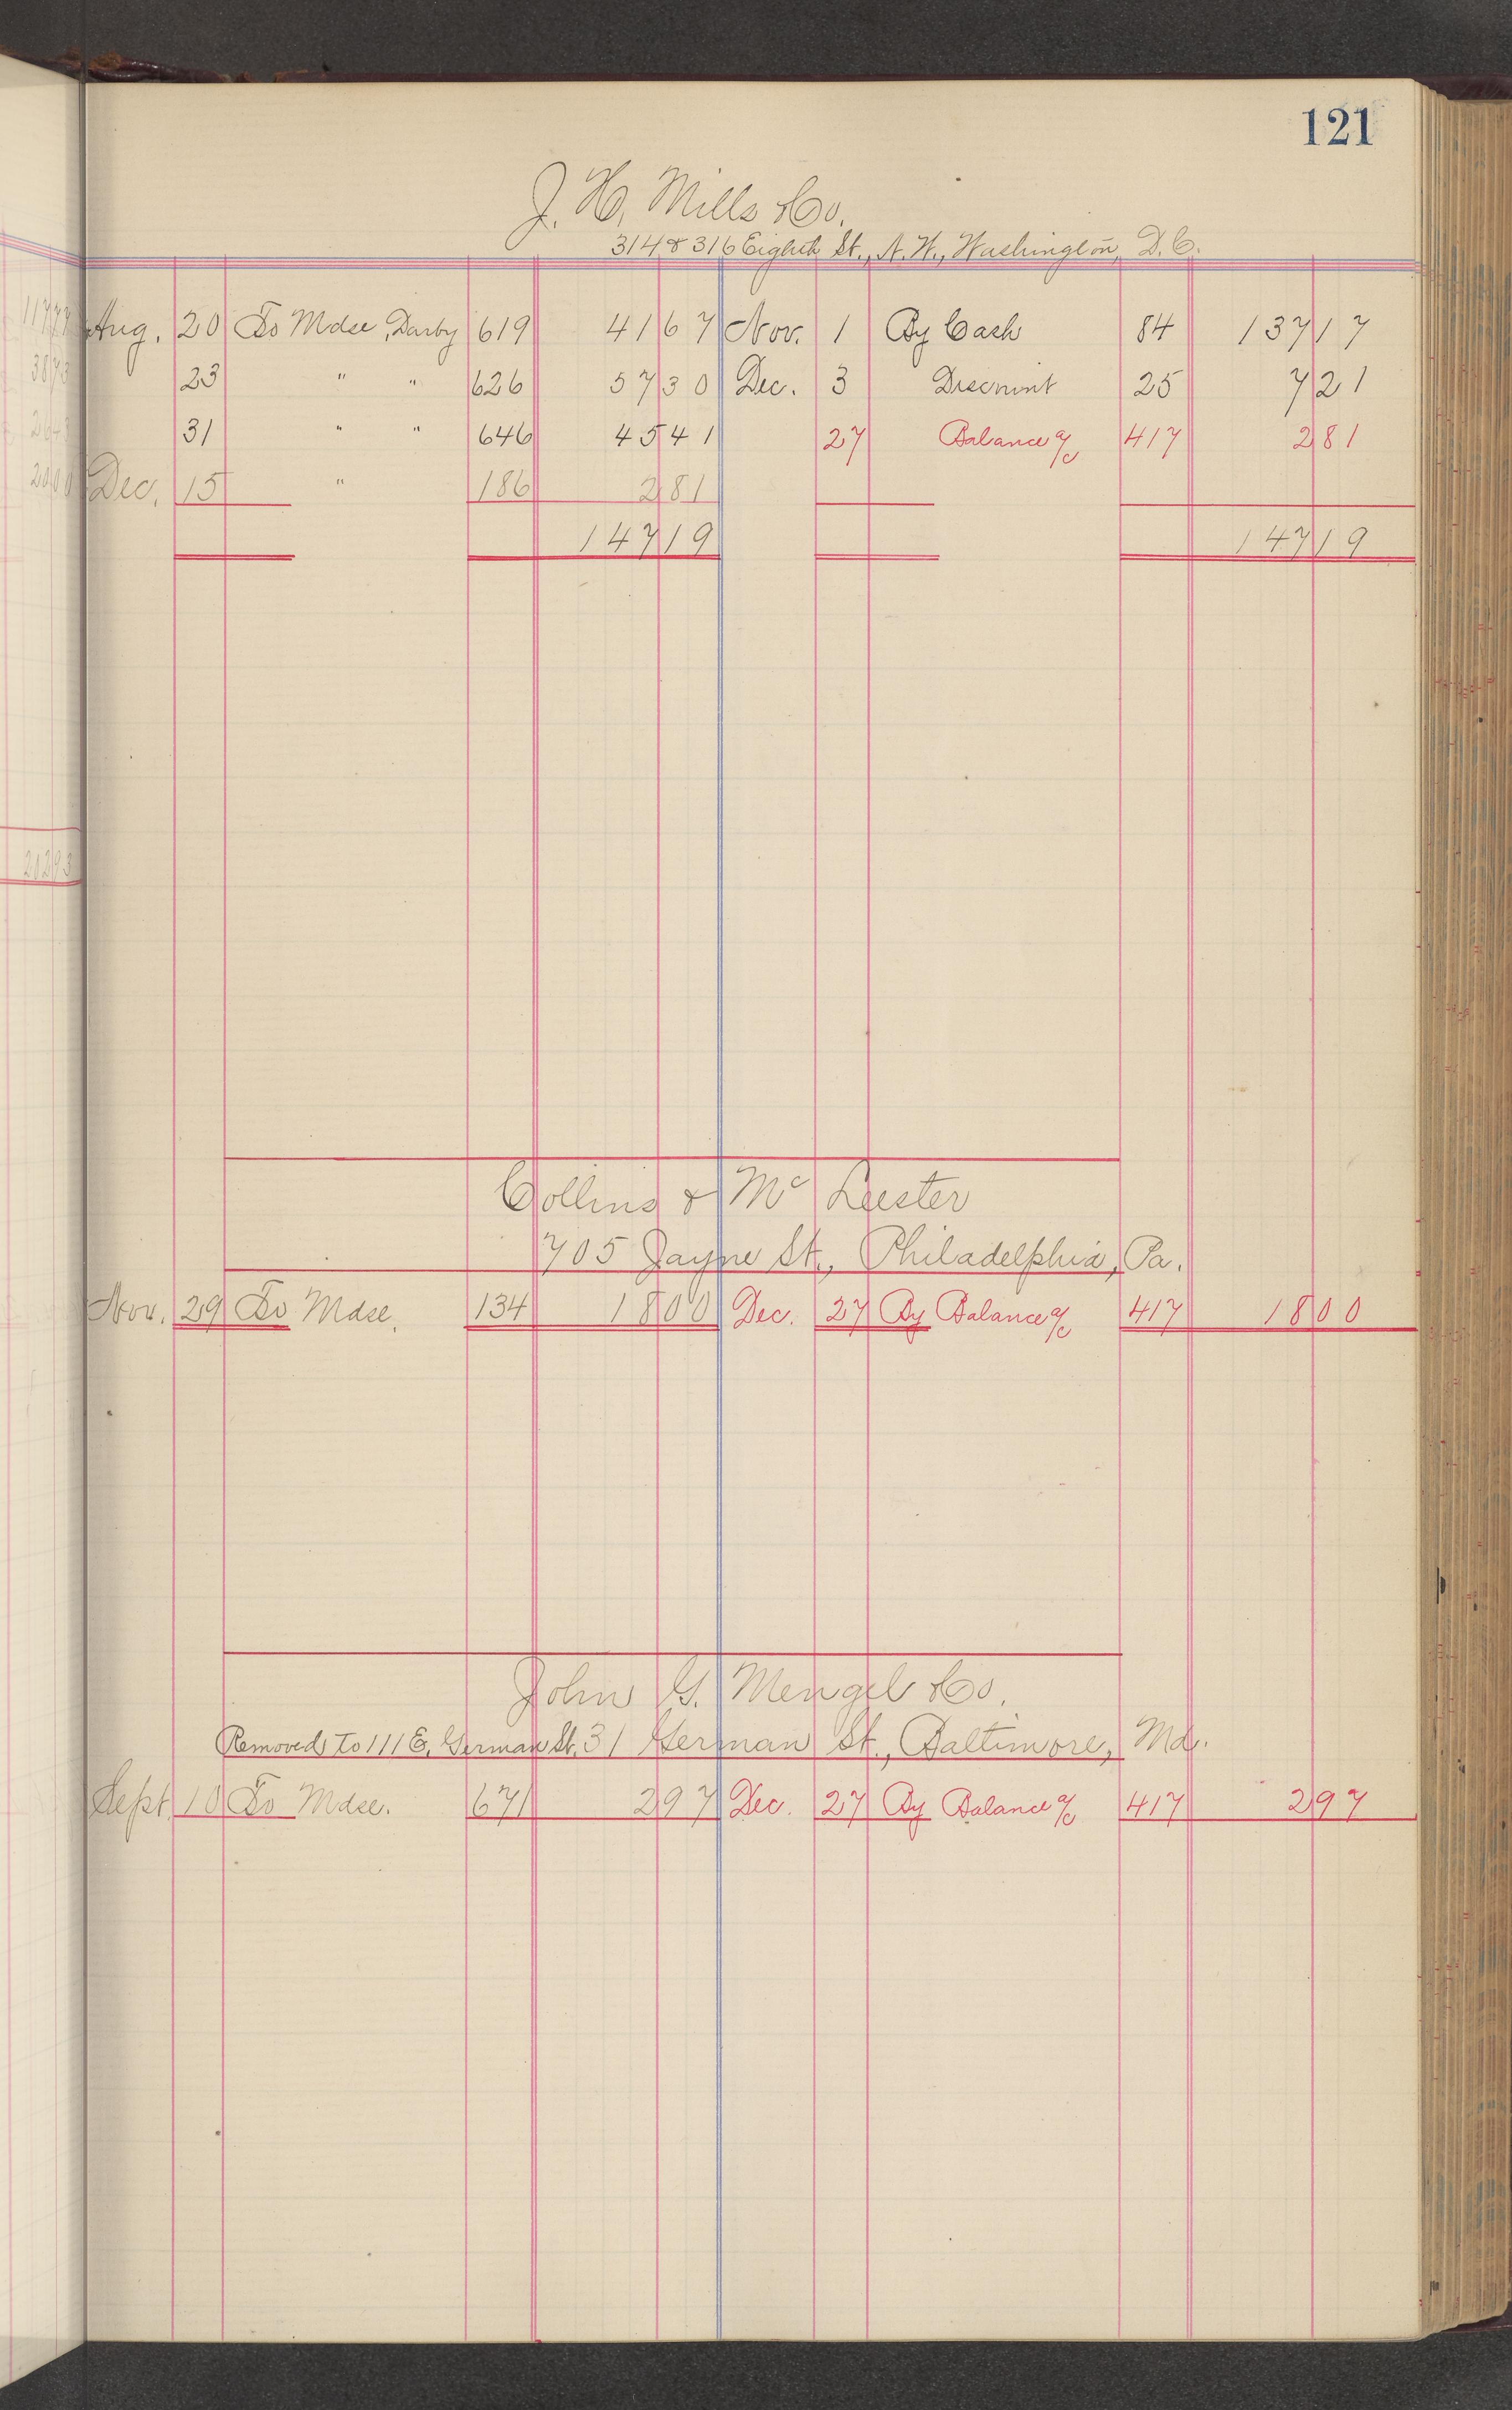 121
J. H. Mills & Co.
314 & 316 Eighth St., N. W., Washington, D. C.
Aug. 20 To Mdse, Darby 619 41 67 Nov. 1 By Cash 84 137 17
23 " " 626 57 30 Dec. 3 Discount 25 7 21
31 " " 646 45 41 27 Balance a/c 417 2 81
Dec. 15 " 186 2 81
147 19 147 19
Collins & Mc Leester
705 Jayne St., Philadelphia, Pa.
Nov. 29 To Mdse. 134 18 00 Dec. 27 By Balance a/c 417 18 00
John G. Mengel & Co.
Removed to 111 E. German St. 31 German St., Baltimore, Md.
Sept. 10 To Mdse. 671 2 97 Dec. 27 By Balance a/c 417 2 97